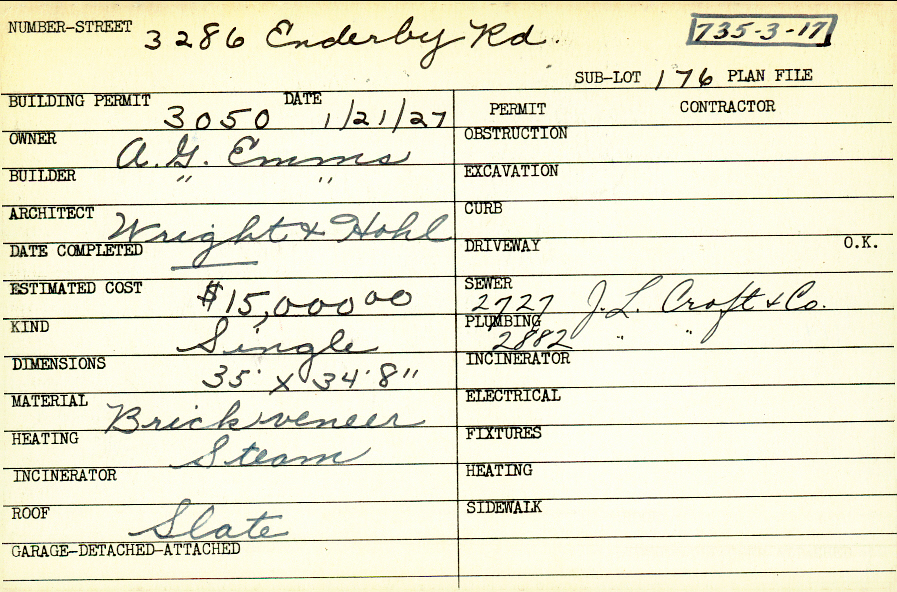 NUMBER-STREET 3286 Enderby Rd. 735-3-17
SUB-LOT 176 PLAN FILE
BUILDING PERMIT 3050 DATE 1/21/27
PERMIT CONTRACTOR
OWNER A.G. Emms
OBSTRUCTION
BUILDER " "
EXCAVATION
ARCHITECT Wright & Hohl
CURB
DATE COMPLETED —
DRIVEWAY O.K.
ESTIMATED COST $15,000.00
SEWER 2727 J.L. Croft & Co.
KIND Single
PLUMBING 2882 " "
DIMENSIONS 35' x 34'8"
INCINERATOR
MATERIAL Brick veneer
ELECTRICAL
HEATING Steam
FIXTURES
INCINERATOR
HEATING
ROOF Slate
SIDEWALK
GARAGE-DETACHED-ATTACHED